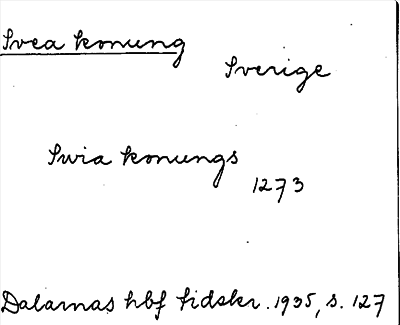 Svea konung
Sverige
Swia konungs
1273
Dalarnas hbf tidskr. 1935, s. 127